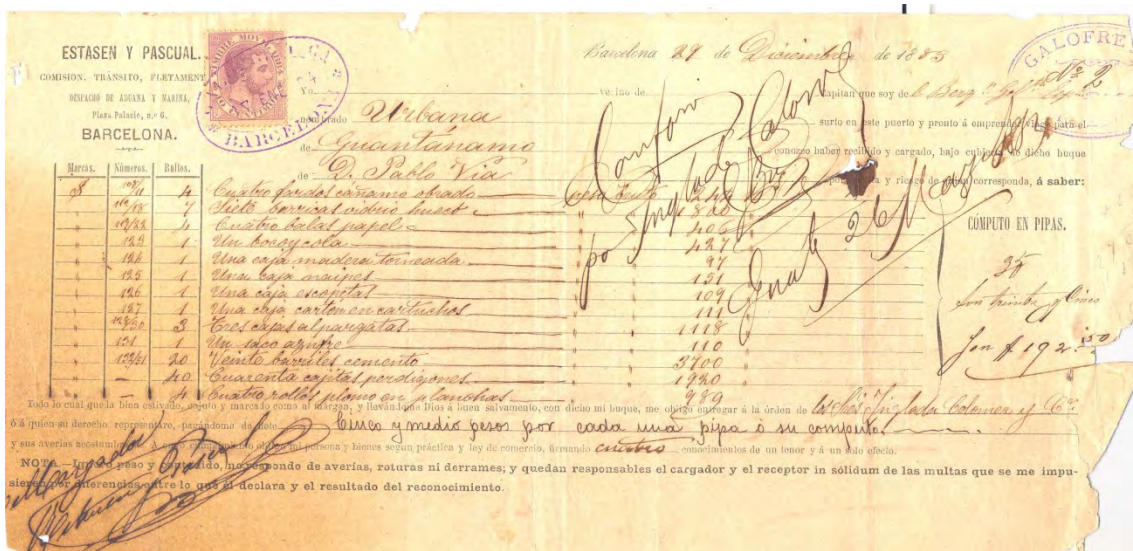 ESTASEN Y PASCUAL.
COMISION, TRÁNSITO, FLETAMENT
DESPACHO DE ADUANA Y MARINA,
Plaza Palacio, n.º 6.
BARCELONA.
TIMBRE MOVIL
BARCELONA
Barcelona 29 de Diciembre de 1883
GALOFRE
Nº 2
Yo vecino de Capitan que soy de
nombrado Urbana surto en este puerto y pronto á emprender viage para el
de Guantánamo conozco haber recibido y cargado, bajo cubierta de dicho buque
de D. Pablo Via y riesgo de quien corresponda, á saber:
Marcas. Números. Bultos.
4 Cuatro fardos cáñamo obrado peso bruto
7 Siete barricas vidrio hueco 1800
4 Cuatro balas papel 406
123 1 Un bocoy cola 427
124 1 Una caja madera torneada 97
125 1 Una caja naipes 151
126 1 Una caja escopetas 109
127 1 Una caja carton en cartuchos 111
3 Tres cajas alpargatas 1118
131 1 Un saco azufre 110
20 Veinte barriles cemento 3700
40 Cuarenta cajitas perdigones 1920
4 Cuatro rollos plomo en planchas 989
CÓMPUTO EN PIPAS.
35
Son treinta y Cinco
Son $ 192.50
Conforme
Todo lo cual queda bien estivado, enjuto y marcado como al márgen, y llevándome Dios á buen salvamento, con dicho mi buque, me obligo entregar á la órden de los Sres Inglada Colomer y Cª
ó á quien su derecho representare, pagándome de flete Cinco y medio pesos por cada una pipa ó su computo.
y sus averías acostumbradas. A cuyo cumplimiento obligo mi persona y bienes segun práctica y ley de comercio, firmando cuatro conocimientos de un tenor y á un solo efecto.
NOTA.—Ignoro peso y contenido, no respondo de averías, roturas ni derrames; y quedan responsables el cargador y el receptor in sólidum de las multas que se me impu-
sieren por diferencias entre lo que él declara y el resultado del reconocimiento.